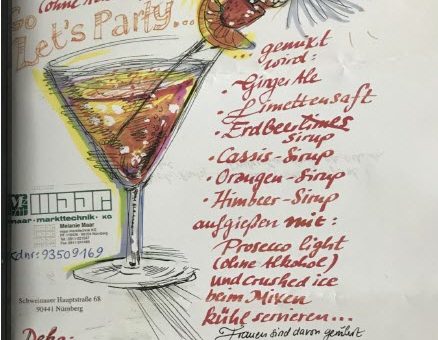 (ohne
Go
Let's Party...
... gemixt
wird:
• GingerAle
• Limettensaft
• Erdbeerlimes
Sirup
• Cassis-Sirup
• Orangen-Sirup
• Himbeer-Sirup
aufgießen mit:
Prosecco light
(ohne Alkohol)
und crushed ice
beim Mixen
kühl servieren...
Frauen sind davon gerührt
maar
maar-markttechnik- KG
Melanie Maar
90441 Nürnberg
Kdnr: 93509169
Schweinauer Hauptstraße 68
90441 Nürnberg
Deko: